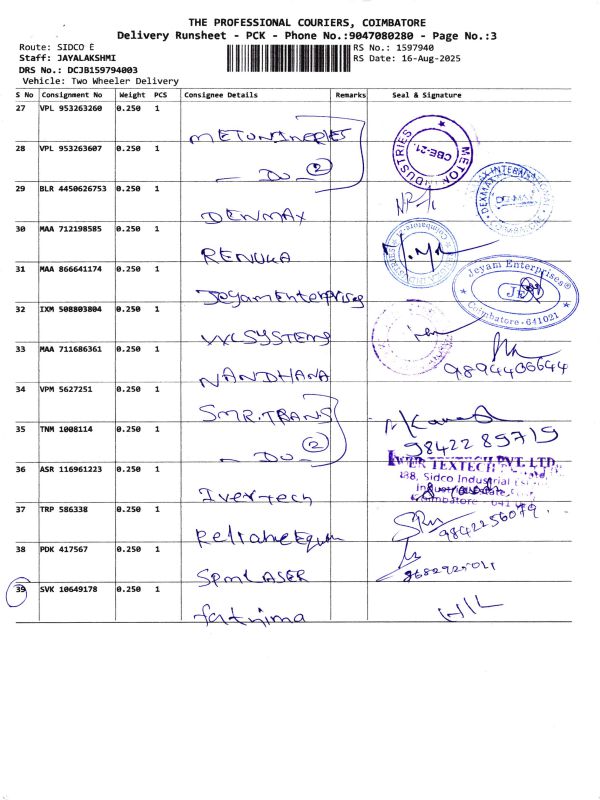 THE PROFESSIONAL COURIERS, COIMBATORE
Delivery Runsheet - PCK - Phone No.:9047080280 - Page No.:3
Route: SIDCO E
RS No.: 1597940
Staff: JAYALAKSHMI
RS Date: 16-Aug-2025
DRS No.: DCJB159794003
Vehicle: Two Wheeler Delivery
S No Consignment No Weight PCS Consignee Details Remarks Seal & Signature
27 VPL 953263260 0.250 1
28 VPL 953263607 0.250 1
METON INDUSTRIES CBE-21.
— DO — 2
29 BLR 4450626753 0.250 1
DENMAX
30 MAA 712198585 0.250 1
RENUKA
31 MAA 866641174 0.250 1
Jeyam Enterprises
Jeyam Enterprises® JE Coimbatore - 641021
32 IXM 508803804 0.250 1
33 MAA 711686361 0.250 1
NANDHANA
9894406644
34 VPM 5627251 0.250 1
SMR.TRANS
35 TNM 1008114 0.250 1
9842289719
— DO — 2
36 ASR 116961223 0.250 1
TEXTECH PVT. LTD.
138, Sidco Industrial
Coimbatore - 641
Ivertech
37 TRP 586338 0.250 1
9842256079
38 PDK 417567 0.250 1
SPM LASER
39 SVK 10649178 0.250 1
fathima